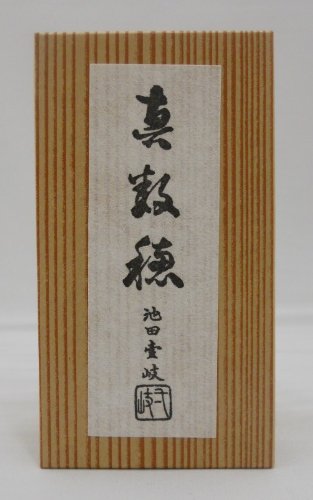 真数穂
池田壹岐